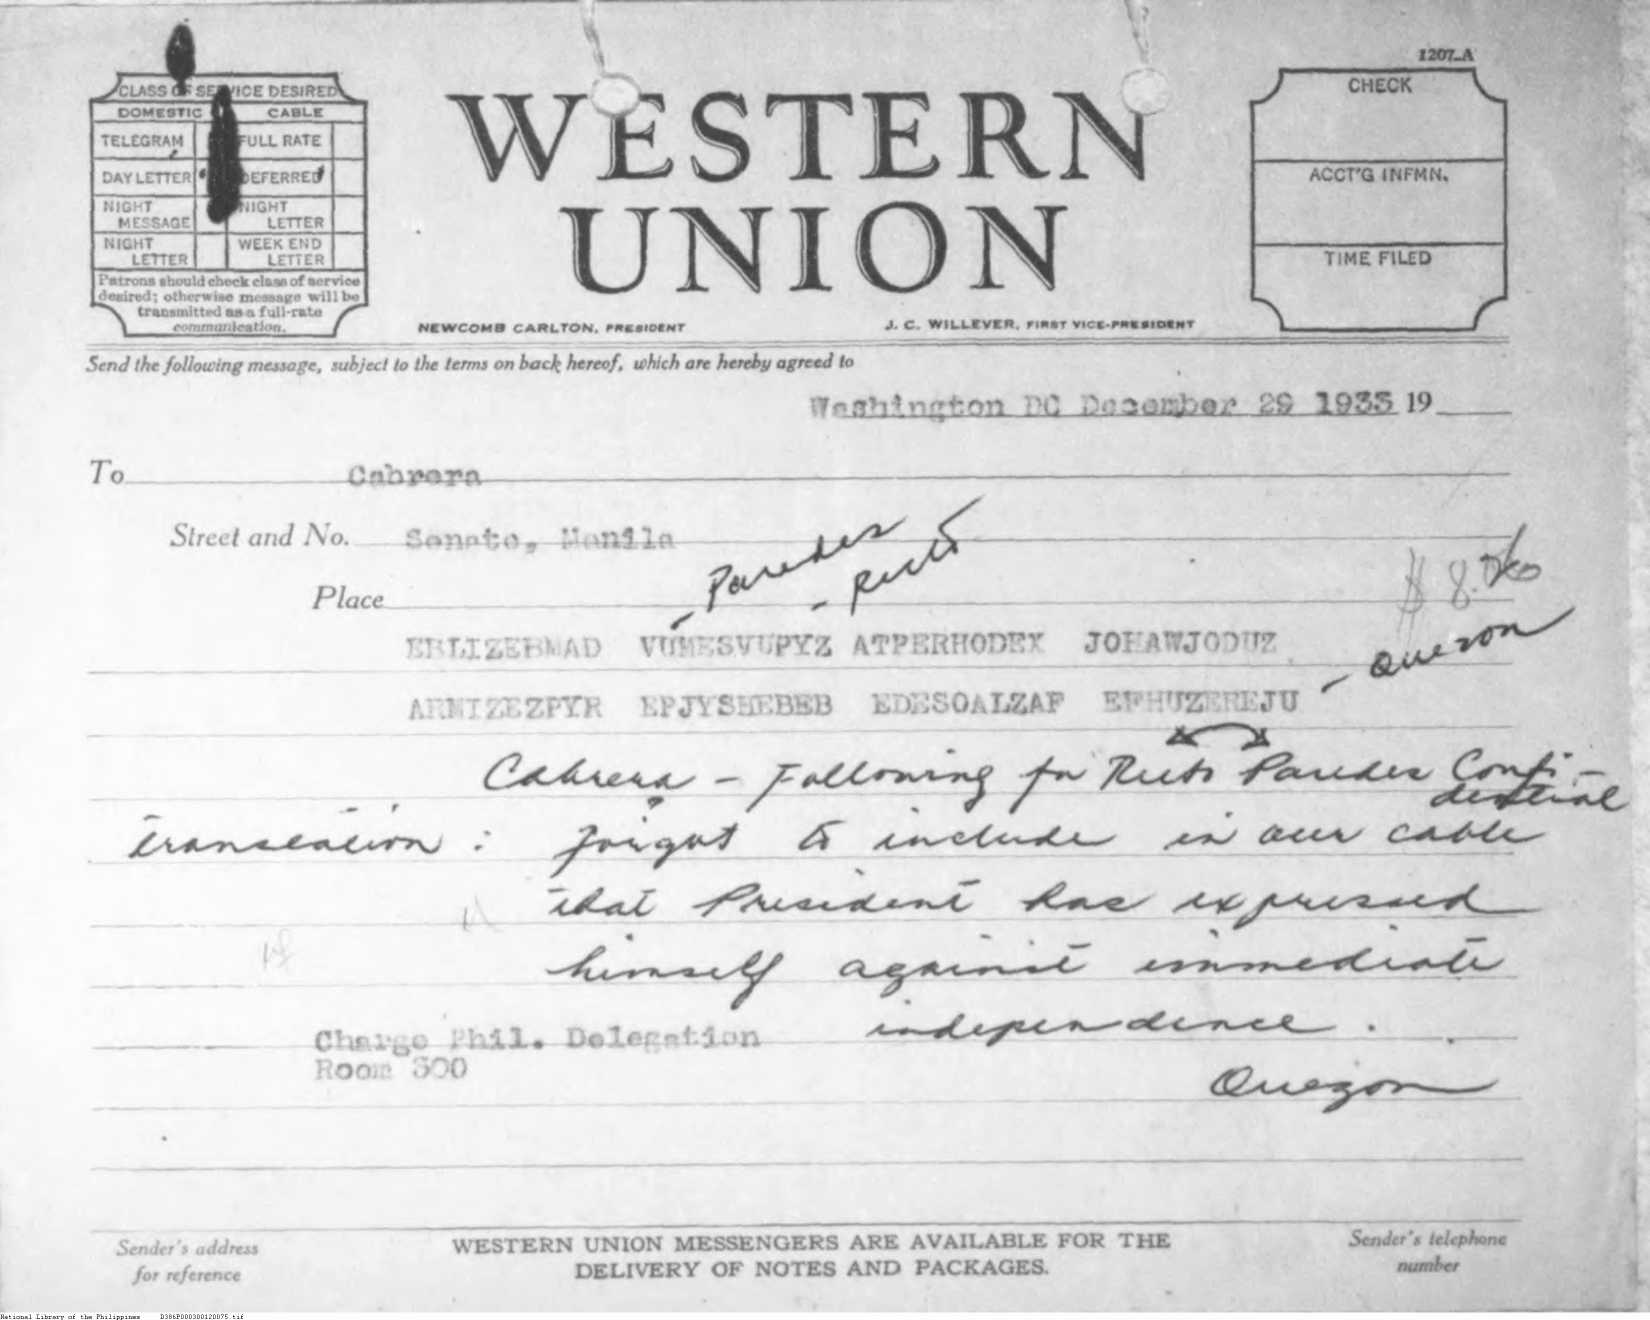 1207-A
CLASS OF SERVICE DESIRED
DOMESTIC CABLE
TELEGRAM FULL RATE
DAY LETTER DEFERRED
NIGHT MESSAGE NIGHT LETTER
NIGHT LETTER WEEK END LETTER
Patrons should check class of service
desired; otherwise message will be
transmitted as a full-rate
communication.
WESTERN
UNION
NEWCOMB CARLTON, PRESIDENT J. C. WILLEVER, FIRST VICE-PRESIDENT
CHECK
ACCT'G INFMN.
TIME FILED
Send the following message, subject to the terms on back hereof, which are hereby agreed to
Washington DC December 29 1933 19
To Cabrera
Street and No. Senate, Manila
- Paredes
- Recto
Place
$ 8.
EBLIZEBMAD VUMESVUPYZ ATPERHODEX JOHAWJODUZ
- Quezon
ARMIZEZPYR EPJYSHEBEB EDESOALZAF EFHUZEREJU
Cabrera - Following for Recto Paredes Confi-
dential
Translation: forgot to include in our cable
that President has expressed
himself against immediate
independence.
Charge Phil. Delegation
Room 500
Quezon
Sender's address
for reference
WESTERN UNION MESSENGERS ARE AVAILABLE FOR THE
DELIVERY OF NOTES AND PACKAGES.
Sender's telephone
number
National Library of the Philippines D386P000300120075.tif